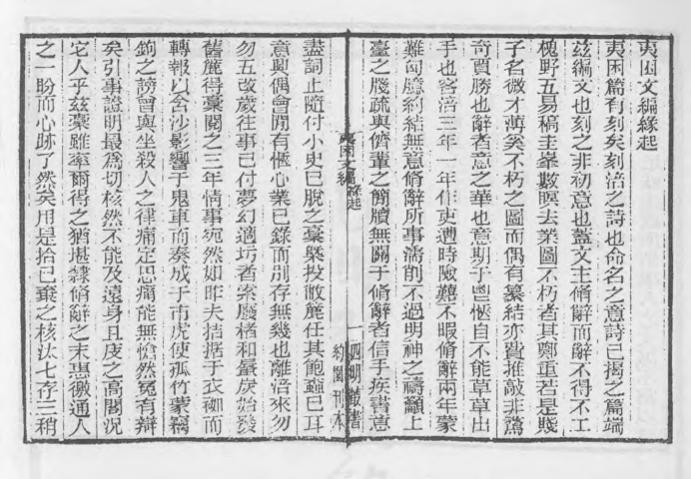 夷困文編緣起
夷困篇有刻矣刻涪之詩也命名之意詩已揭之篇端
茲編文也刻之非初意也蓋文主脩辭而辭不得不工
槐野五易稿圭峯數瞑去業圖不朽者其鄭重若是賤
子名微才薄矣不朽之圖而偶有纂結亦費推敲非謂
奇賈勝也辭者意之華也意期于鬯愜自不能草草出
手也客涪三年一年作吏遭時險難不暇脩辭兩年蒙
難匈臆約結無意脩辭所事滴削不過明神之禱籲上
臺之牋疏與儕輩之簡牘無關于脩辭者信手疾書意
夷困文編 緣起
一 四明叢書
約園刊本
盡詞止隨付小史已脫之稾槩投敝簏任其飽蠹已耳
意興偶會閒有愜心業已錄而別存無幾也離涪來勿
勿五改歲往事已付夢幻適坊者索廢楮和蜃炭始發
舊簏得稾閱之三年情事宛然如昨夫拮据于衣袽而
轉報以含沙影響于鬼車而泰成于市虎使孤竹蒙竊
鉤之謗曾與坐殺人之律痛定思痛能無愴然冤有辯
矣引事證明最爲切核然不能及遠身且庋之高閣況
它人乎茲稾雖率爾得之猶堪隸脩辭之末惠徼通人
之一盼而心跡了然矣用是拾已棄之核汰七存三稍